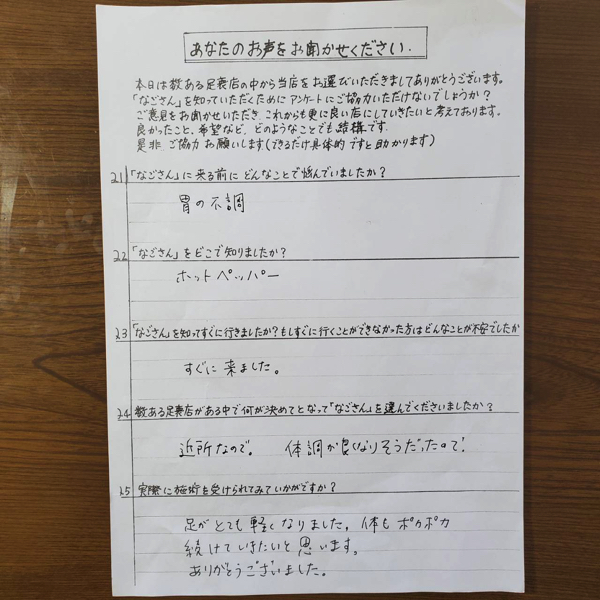 あなたのお声をお聞かせください.
本日は数ある足裏店の中から当店をお選びいただきましてありがとうございます。
「なごさん」を知っていただくために アンケートにご協力いただけないでしょうか?
ご意見をお聞かせいただき これからも更に良い店にしていきたいと考えております。
良かったこと、希望など、どのようなことでも結構です.
是非 ご協力 お願いします(できるだけ具体的 ですと助かります)
21 「なごさん」に来る前に どんなことで悩んでいましたか?
胃の不調
22 「なごさん」をどこで知りましたか?
ホットペッパー
23 「なごさん」を知ってすぐに行きましたか?もしすぐに行くことができなかった方はどんなことが不安でしたか
すぐに来ました。
24 数ある足裏店がある中で何が決めてとなって「なごさん」を選んでくださいましたか?
近所なので。 体調が良くなりそうだったので!
25 実際に施術を受けられてみていかがですか?
足がとても軽くなりました, 体もポカポカ
続けていきたいと思います。
ありがとうございました。